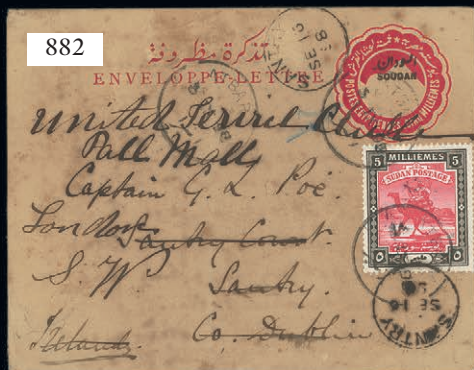 882
تذكرة مظروفة
ENVELOPPE-LETTRE
SOUDAN
United Service Club
Pall Mall
Captain G. L. Poë.
London
Santry Court.
S. W
Santry.
Co. Dublin
Ireland
5 MILLIEMES 5
SUDAN POSTAGE
SANTRY
SE 16
98
SANTRY
SE 16
98